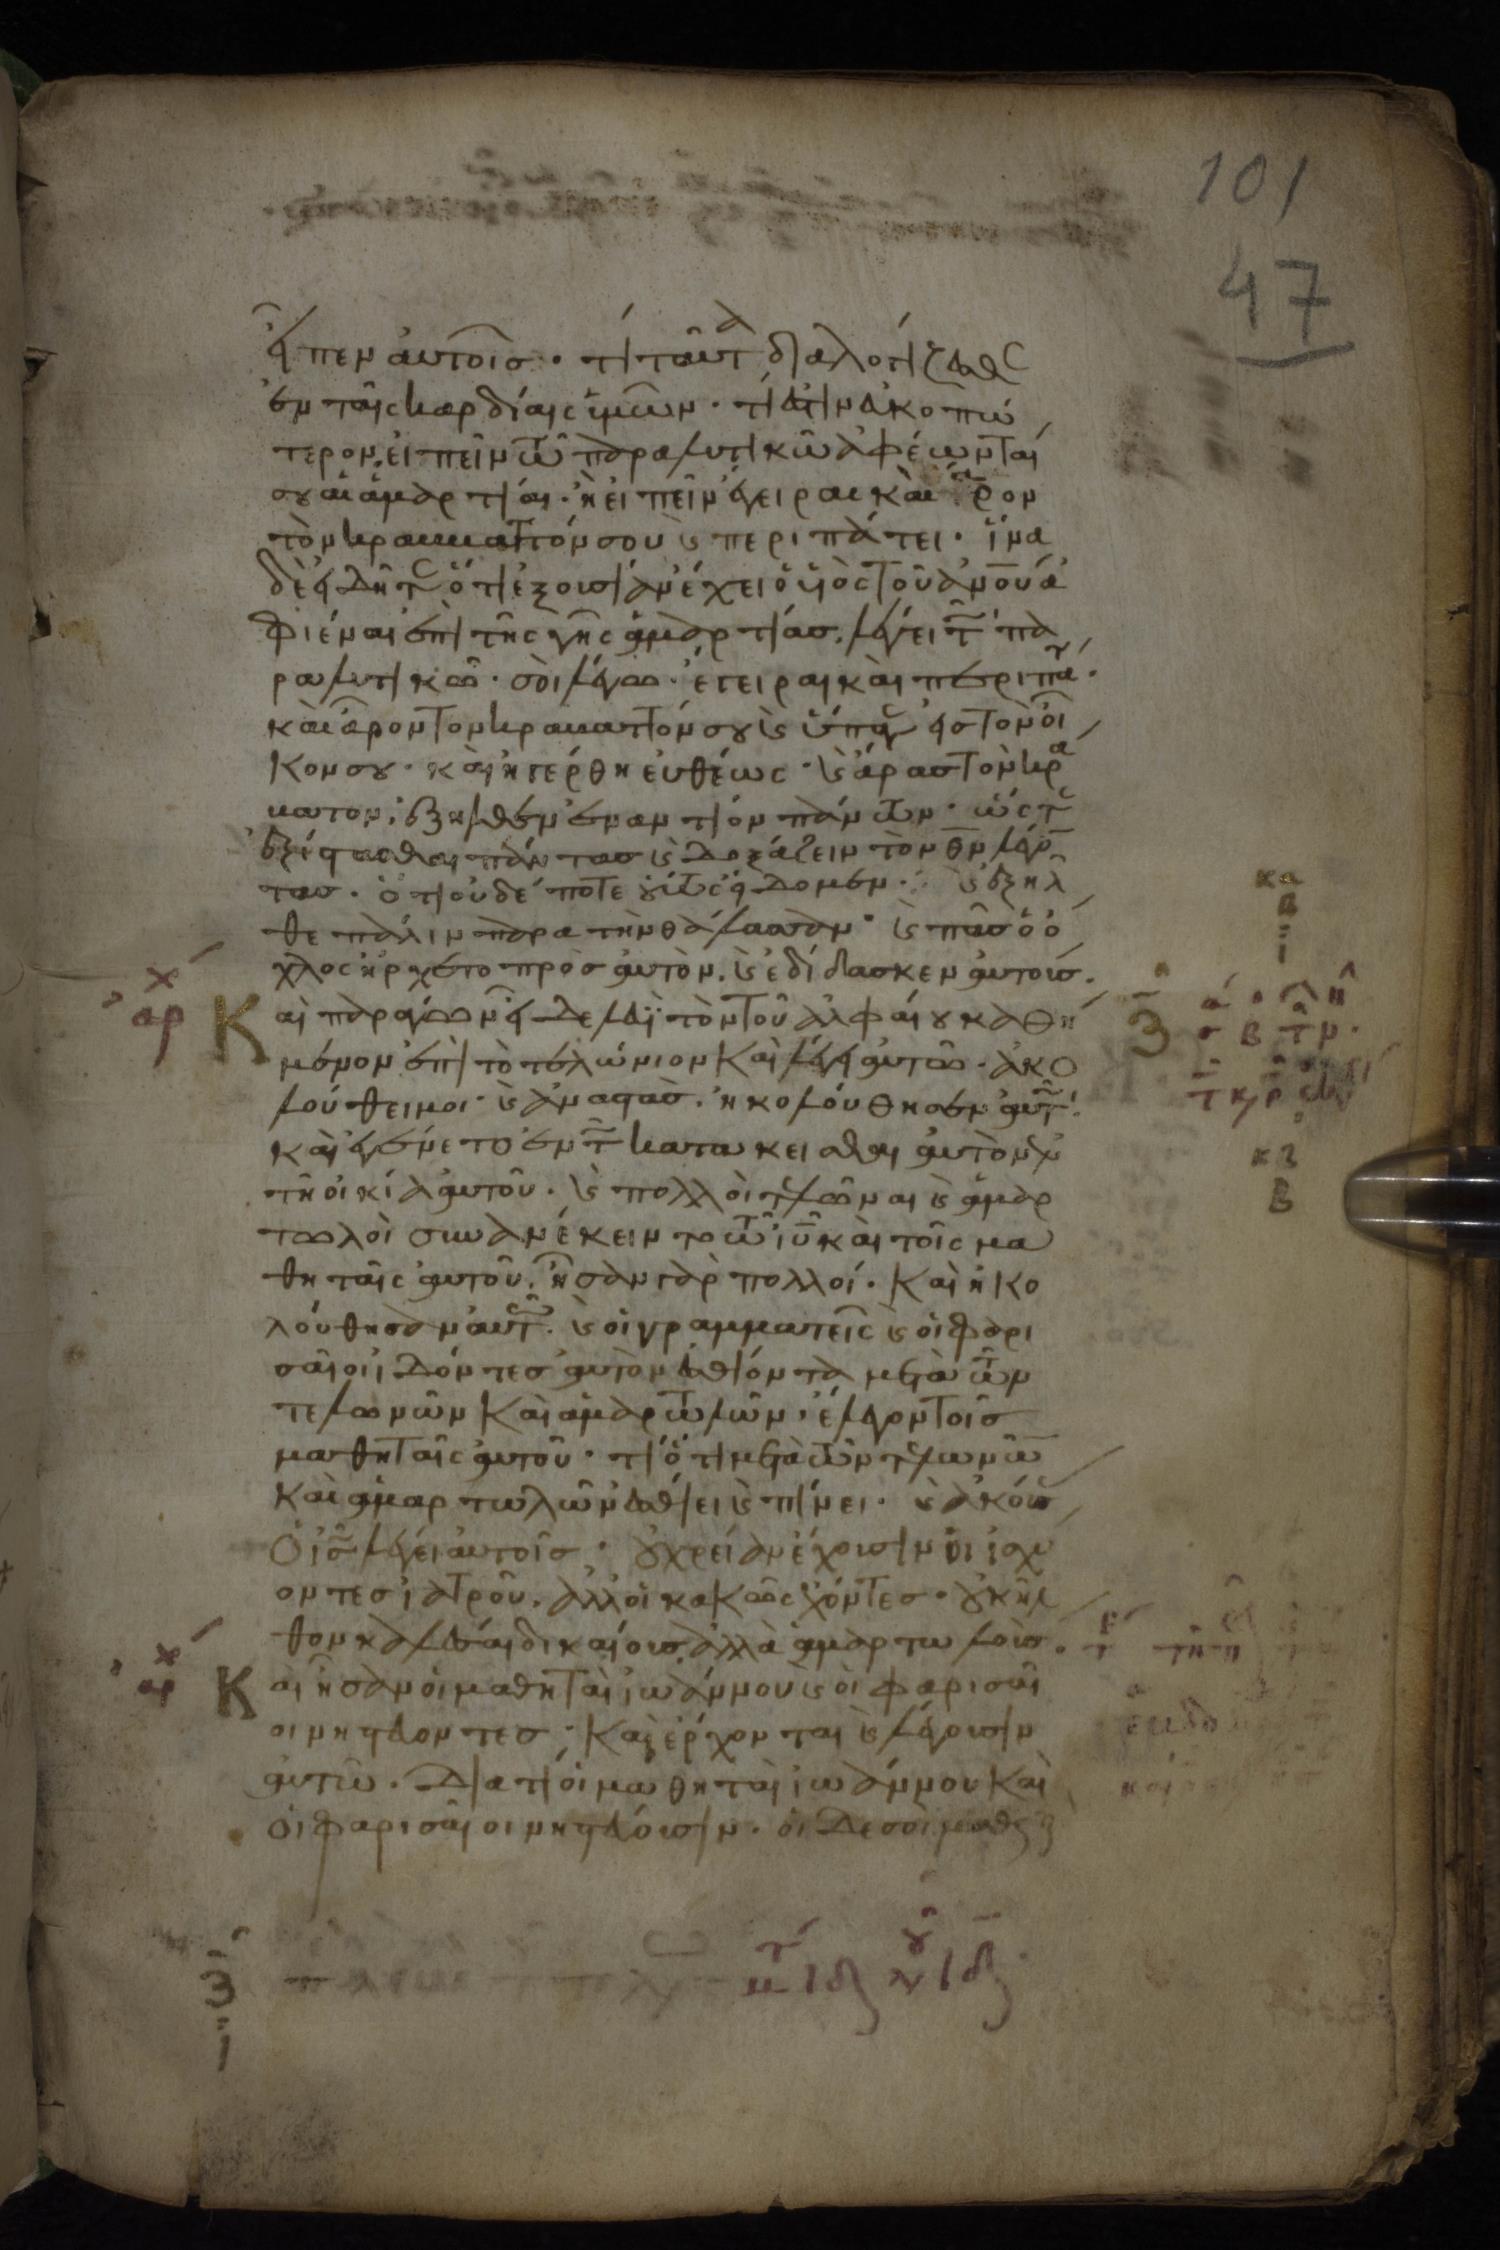 101
47
εἶπεν αὐτοῖς· τί ταῦτα διαλογίζεσθε
ἐν ταῖς καρδίαις ὑμῶν· τί ἐστιν εὐκοπώ
τερον, εἰπεῖν τῶ παραλυτικῶ ἀφέωνταί
σου αἱ ἁμαρτίαι· ἢ εἰπεῖν ἔγειραι καὶ ἆρον
τὸν κράββατόν σου καὶ περιπάτει· ἵνα
δὲ εἰδῆτε ὅτι ἐξουσίαν ἔχει ὁ υἱὸς τοῦ ἀνου ἀ
φιέναι ἐπὶ τῆς γῆς ἁμαρτίας, λέγει τῶ πα
ραλυτικῶ· σοὶ λέγω· ἔγειραι καὶ περιπάτει·
καὶ ἆρον τὸν κράβαττόν σου καὶ ὕπαγε εἰς τὸν οἶ
κόν σου· καὶ ἠγέρθη εὐθέως· καὶ ἄρας τὸν κρά
βατον, ἐξῆλθεν ἐναντίον πάντων· ὥστε
ἐξίστασθαι πάντας καὶ δοξάζειν τὸν θν λέγον
τας· ὅτι οὐδέποτε οὕτως εἴδομεν· καὶ ἐξῆλ
θε πάλιν παρὰ τὴν θάλασσαν· καὶ πᾶς ὁ ὄ
χλος ἤρχετο πρὸς αὐτὸν, καὶ ἐδίδασκεν αὐτούς.
Καὶ παράγων εἶδε λευῒ τὸν τοῦ ἀλφαίου καθή
μενον ἐπὶ τὸ τελώνιον καὶ λέγει αὐτῶ· ἀκο
λούθει μοι· καὶ ἀναστὰς, ἠκολούθησεν αὐτῶ·
καὶ ἐγένετο ἐν τῶ κατακεῖσθαι αὐτὸν ἐν
τῆ οἰκία αὐτοῦ· καὶ πολλοὶ τελῶναι καὶ ἁμαρ
τωλοὶ συνανέκειντο τῶ ιυ καὶ τοῖς μα
θηταῖς αὐτοῦ, ἦσαν γὰρ πολλοί· καὶ ἠκο
λούθησαν αὐτῶ· καὶ οἱ γραμματεῖς καὶ οἱ φαρι
σαῖοι ἰδόντες αὐτὸν ἐσθίοντα μετὰ τῶν
τελωνῶν καὶ ἁμαρτωλῶν, ἔλεγον τοῖς
μαθηταῖς αὐτοῦ· τί ὅτι μετὰ τῶν τελωνῶν
καὶ ἁμαρτωλῶν ἐσθίει καὶ πίνει· καὶ ἀκούσας
ὁ ις λέγει αὐτοῖς· οὐ χρείαν ἔχουσιν οἱ ἰσχύ
οντες ἰατροῦ, ἀλλ' οἱ κακῶς ἔχοντες· οὐκ ἦλ
θον καλέσαι δικαίους, ἀλλὰ ἁμαρτωλούς.
Καὶ ἦσαν οἱ μαθηταὶ ἰωάννου καὶ οἱ φαρισαῖ
οι νηστεύοντες· καὶ ἔρχονται καὶ λέγουσιν
αὐτῶ· διατί οἱ μαθηταὶ ἰωάννου καὶ
οἱ φαρισαῖοι νηστεύουσιν· οἱ δὲ σοὶ μαθηταὶ
κα
β
ι
κβ
β